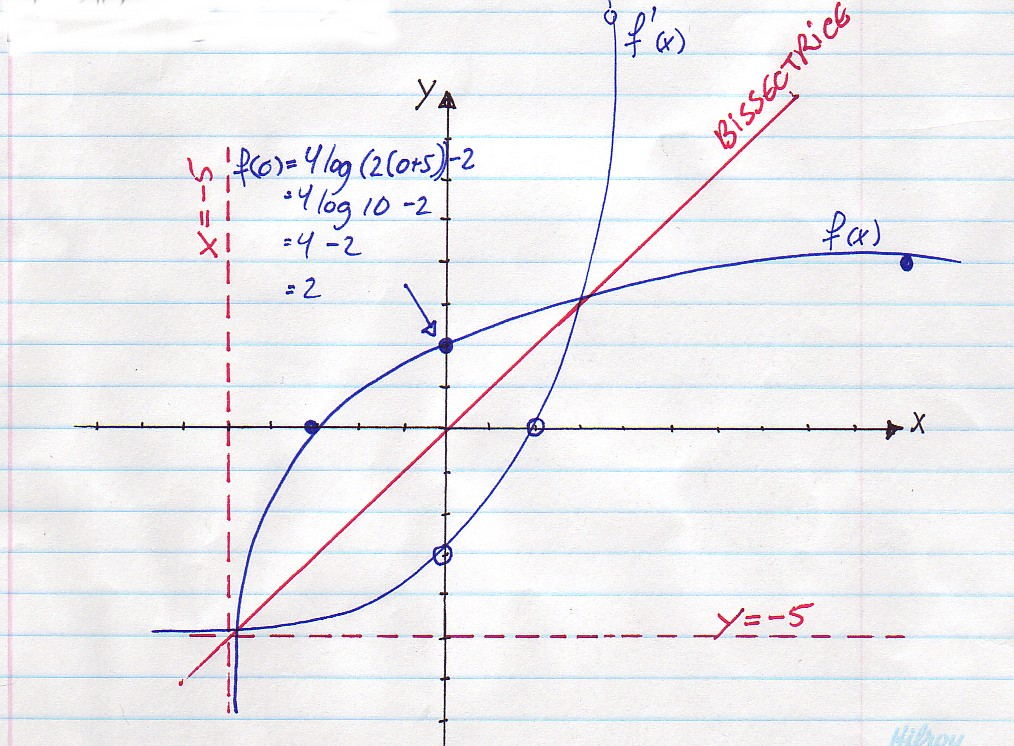 f'(x)
BISSECTRICE
y
x = -5
f(0) = 4 log (2(0+5)) - 2
= 4 log 10 - 2
= 4 - 2
= 2
f(x)
x
y = -5
Hilroy